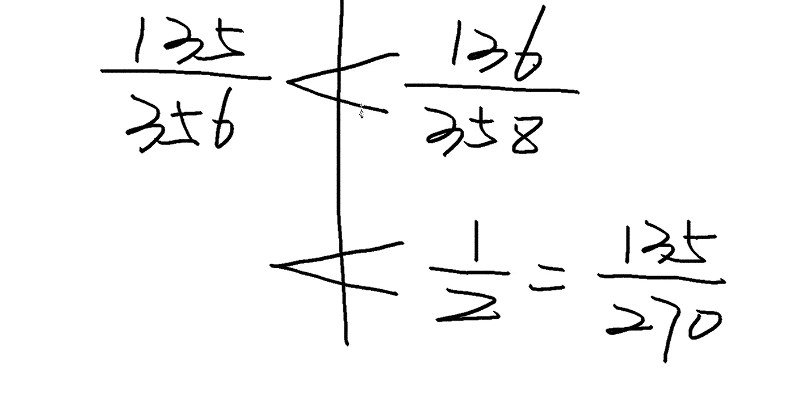 135/356 < 136/358
< 1/2 = 135/270